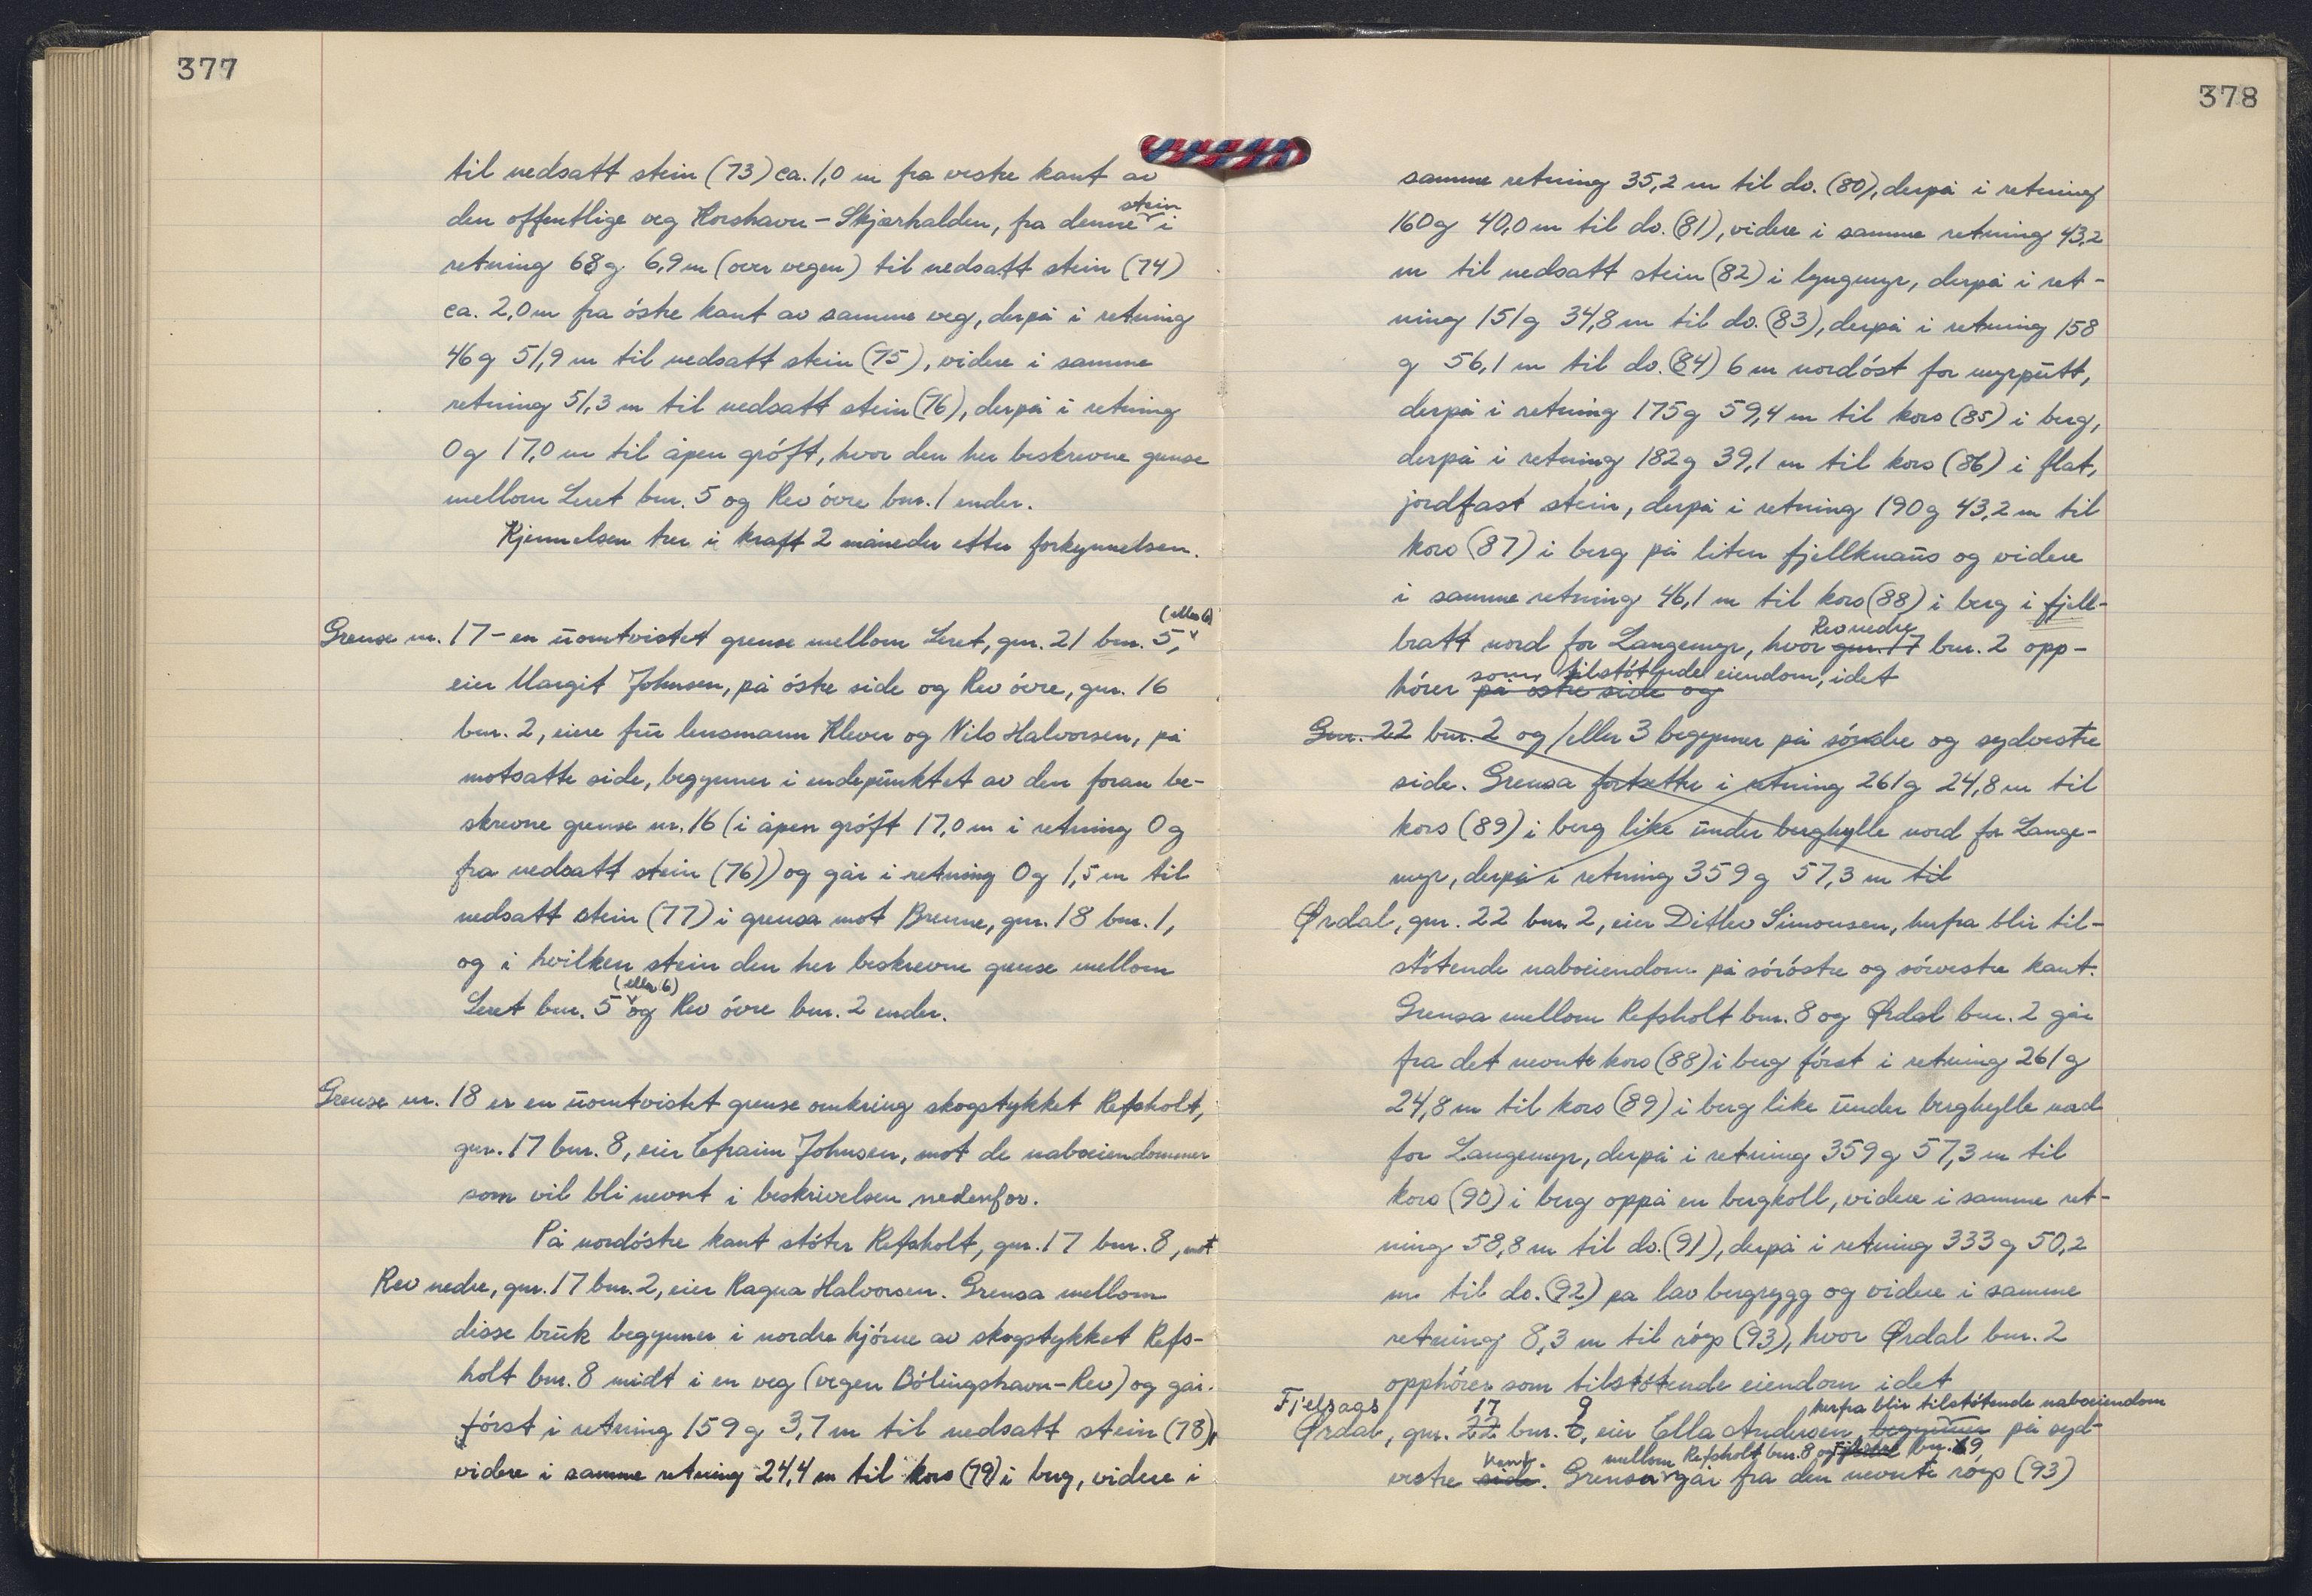 377
til nedsatt stein (73) ca. 1,0 m fra vestre kant av
den offentlige veg Korshavn - Skjærhalden, fra denne stein i
retning 68g 6,9 m (over vegen) til nedsatt stein (74)
ca. 2,0 m fra óstre kant av samme veg, derpå i retning
46g 51,9 m til nedsatt stein (75), videre i samme
retning 51,3 m til nedsatt stein (76), derpå i retning
0g 17,0 m til åpen gróft, hvor den her beskrevne grense
mellom Leret bnr. 5 og Rev óvre bnr. 1 ender.
Kjennelsen trer i kraft 2 måneder etter forkynnelsen.
Grense nr. 17 - en uomtvistet grense mellom Leret, gnr. 21 bnr. 5, (eller 6)
eier Margit Johnsen, på óstre side og Rev óvre, gnr. 16
bnr. 2, eiere fru lensmann Klever og Nils Halvorsen, på
motsatte side, begynner i endepunktet av den foran be-
skrevne grense nr. 16 (i åpen gróft 17,0 m i retning 0g
fra nedsatt stein (76)) og går i retning 0g 1,5 m til
nedsatt stein (77) i grensa mot Brenne, gnr. 18 bnr. 1,
og i hvilken stein den her beskrevne grense mellom
Leret bnr. 5 (eller 6) og Rev óvre bnr. 2 ender.
Grense nr. 18 er en uomtvistet grense omkring skogstykket Refsholt,
gnr. 17 bnr. 8, eier Efraim Johnsen, mot de naboeiendommer
som vil bli nevnt i beskrivelsen nedenfor.
På nordóstre kant stóter Refsholt, gnr. 17 bnr. 8, mot
Rev nedre, gnr. 17 bnr. 2, eier Ragna Halvorsen. Grensa mellom
disse bruk begynner i nordre hjórne av skogstykket Refs-
holt bnr. 8 midt i en veg (vegen Bólingshavn-Rev) og går
fórst i retning 159g 3,7 m til nedsatt stein (78),
videre i samme retning 24,4 m til kors (79) i berg, videre i
378
samme retning 35,2 m til do. (80), derpå i retning
160g 40,0 m til do. (81), videre i samme retning 43,2
m til nedsatt stein (82) i lyngmyr, derpå i ret-
ning 151g 34,8 m til do. (83), derpå i retning 158
g 56,1 m til do. (84) 6 m nordóst for myrputt,
derpå i retning 175g 59,4 m til kors (85) i berg,
derpå i retning 182g 39,1 m til kors (86) i flat,
jordfast stein, derpå i retning 190g 43,2 m til
kors (87) i berg på liten fjellknaus og videre
i samme retning 46,1 m til kors (88) i berg i fjell-
bratt nord for Langemyr, hvor gnr. 17 Rev nedre bnr. 2 opp-
hórer på óstre side og som tilstótende eiendom, idet
Gnr. 22 bnr. 2 og/eller 3 begynner på sóndre og sydvestre
side. Grensa fortsetter i retning 261g 24,8 m til
kors (89) i berg like under berghylle nord for Lange-
myr, derpå i retning 359g 57,3 m til
Ørdal, gnr. 22 bnr. 2, eier Ditlev Simonsen, herfra blir til-
stótende naboeiendom på sóróstre og sórvestre kant.
Grensa mellom Refsholt bnr. 8 og Ørdal bnr. 2 går
fra det nevnte kors (88) i berg fórst i retning 261g
24,8 m til kors (89) i berg like under berghylle nord
for Langemyr, derpå i retning 359g 57,3 m til
kors (90) i berg oppå en bergkoll, videre i samme ret-
ning 58,8 m til do. (91), derpå i retning 333g 50,2
m til do. (92) på lav bergrygg og videre i samme
retning 8,3 m til róys (93), hvor Ørdal bnr. 2
opphórer som tilstótende eiendom idet
Fjelsags 17 9 herfra blir tilstótende naboeiendom
Ørdal, gnr. 22 bnr. 6, eier Ella Andersen, begynner på syd-
kant. mellom Refsholt bnr. 8 og bnr. 9
vestre side. Grensa går fra den nevnte róys (93)